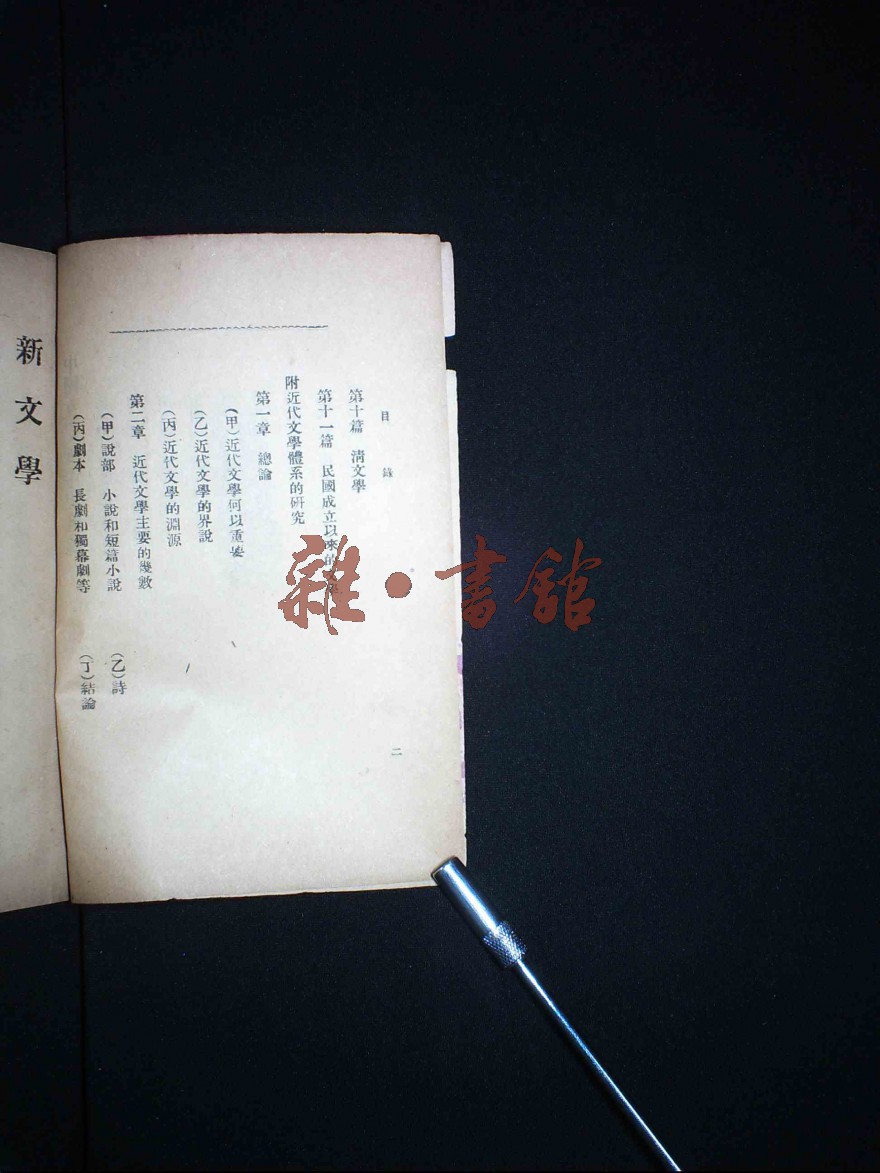 目錄
第十篇　淸文學
第十一篇　民國成立以來的文學
附近代文學體系的研究
第一章　總論
（甲）近代文學何以重要
（乙）近代文學的界說
（丙）近代文學的淵源
第二章　近代文學主要的幾數
（甲）說部　小說和短篇小說　（乙）詩
（丙）劇本　長劇和獨幕劇等　（丁）結論
二
新文學
雜·書館